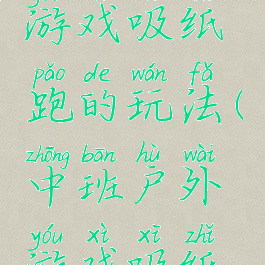 游戏吸纸
pǎo de wán fǎ
跑的玩法(
zhōng bān hù wài
中班户外
yóu xì xī zhǐ
游戏吸纸